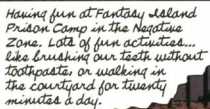 Having fun at Fantasy Island
Prison Camp in the Negative
Zone. Lots of fun activities...
like brushing our teeth without
toothpaste, or walking in
the courtyard for twenty
minutes a day.